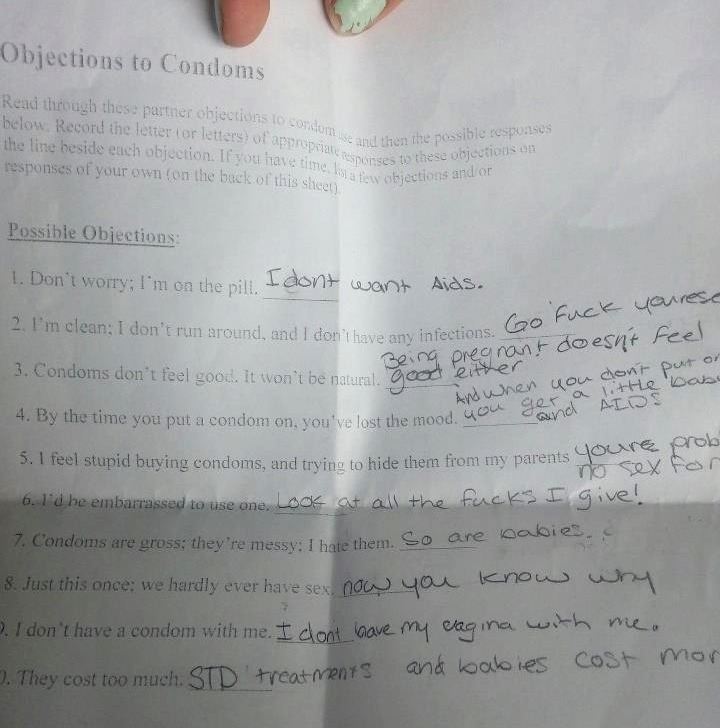 Objections to Condoms
Read through these partner objections to condom use and then the possible responses
below. Record the letter (or letters) of appropriate responses to these objections on
the line beside each objection. If you have time, list a few objections and/or
responses of your own (on the back of this sheet).
Possible Objections:
1. Don't worry; I'm on the pill. I dont want Aids.
2. I'm clean; I don't run around, and I don't have any infections. Go Fuck
Being pregnant doesn't feel
3. Condoms don't feel good. It won't be natural. good either
And when you don't put
4. By the time you put a condom on, you've lost the mood. you get a little
and AIDS
5. I feel stupid buying condoms, and trying to hide them from my parents youre
no sex
6. I'd be embarrassed to use one. Look at all the fucks I give!
7. Condoms are gross; they're messy; I hate them. So are babies.
8. Just this once; we hardly ever have sex. now you know why
. I don't have a condom with me. I dont have my vagina with me.
. They cost too much. STD treatments and babies cost